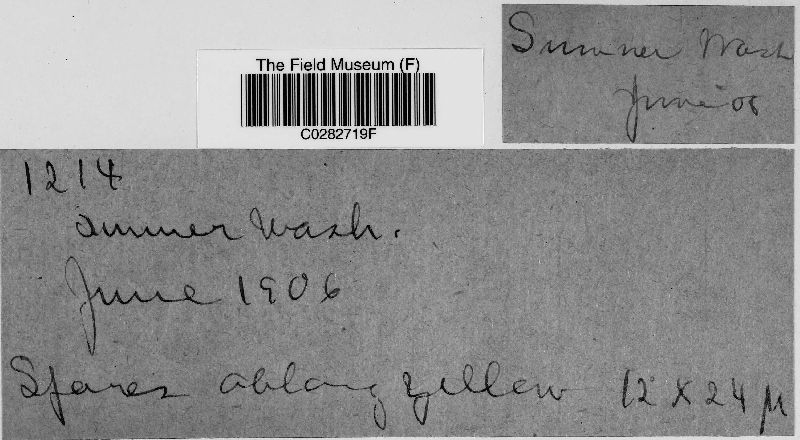 The Field Museum (F)
C0282719F
Sumner Wash
June 06
1214
Sumner Wash.
June 1906
Spores oblong yellow 12 x 24 µ